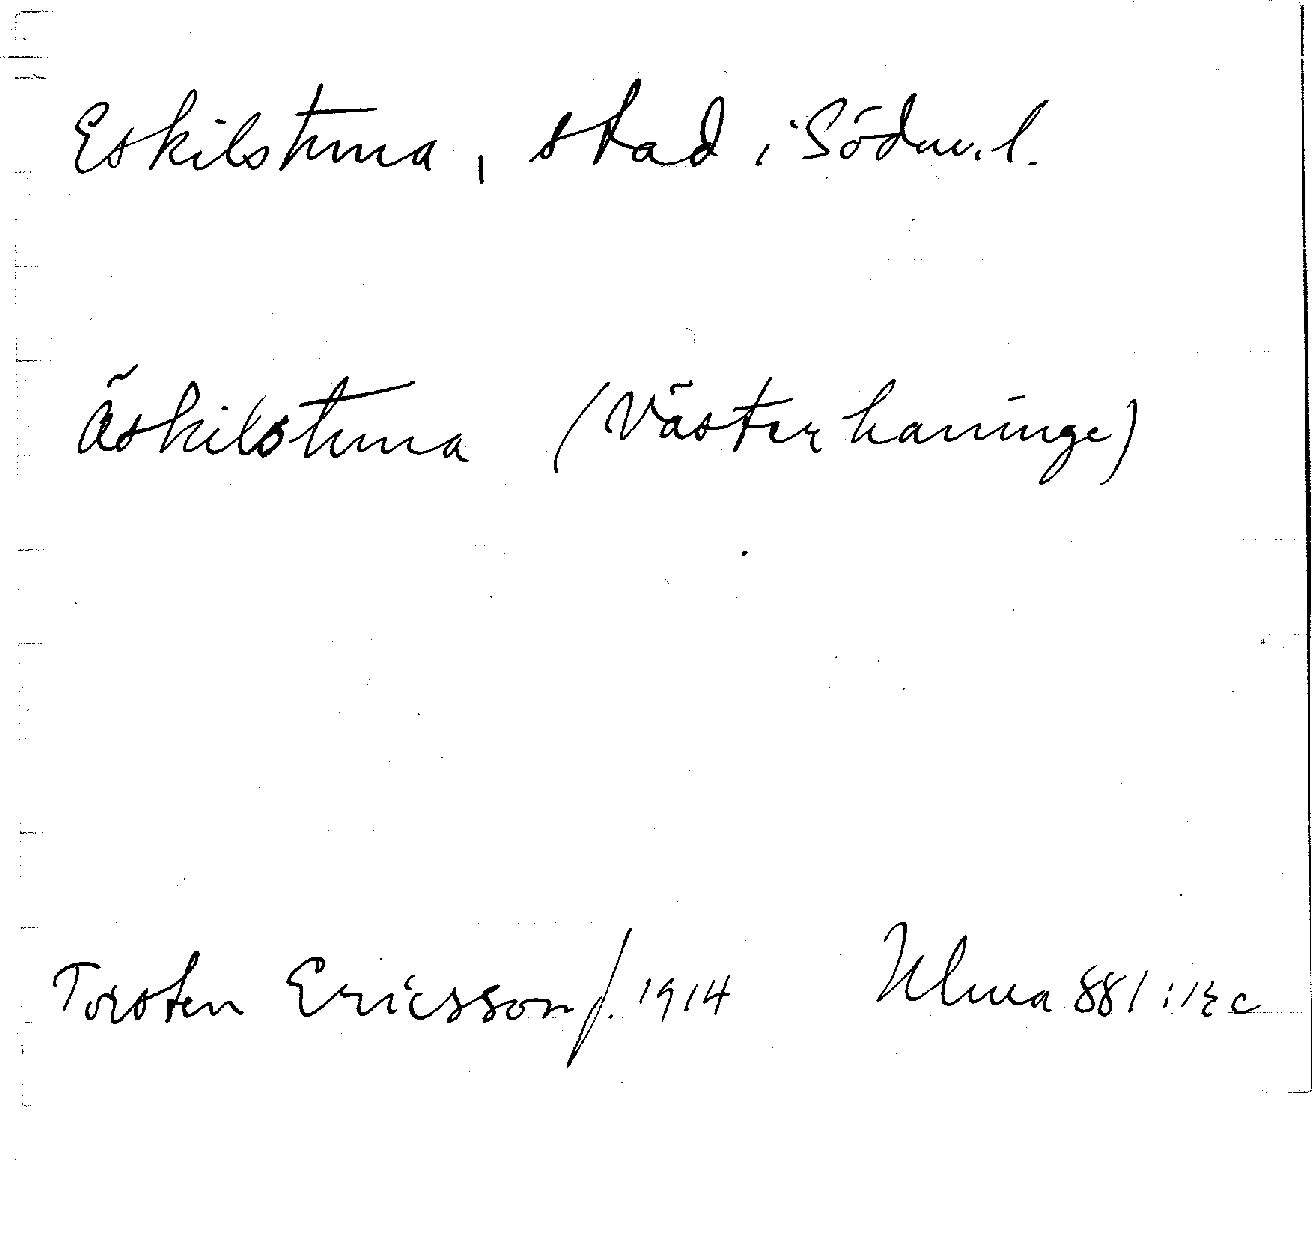 Eskilstuna, stad i Södm.l.
Äskilstuna (Västerhaninge)
Torsten Ericsson f. 1914 Ulma 881: